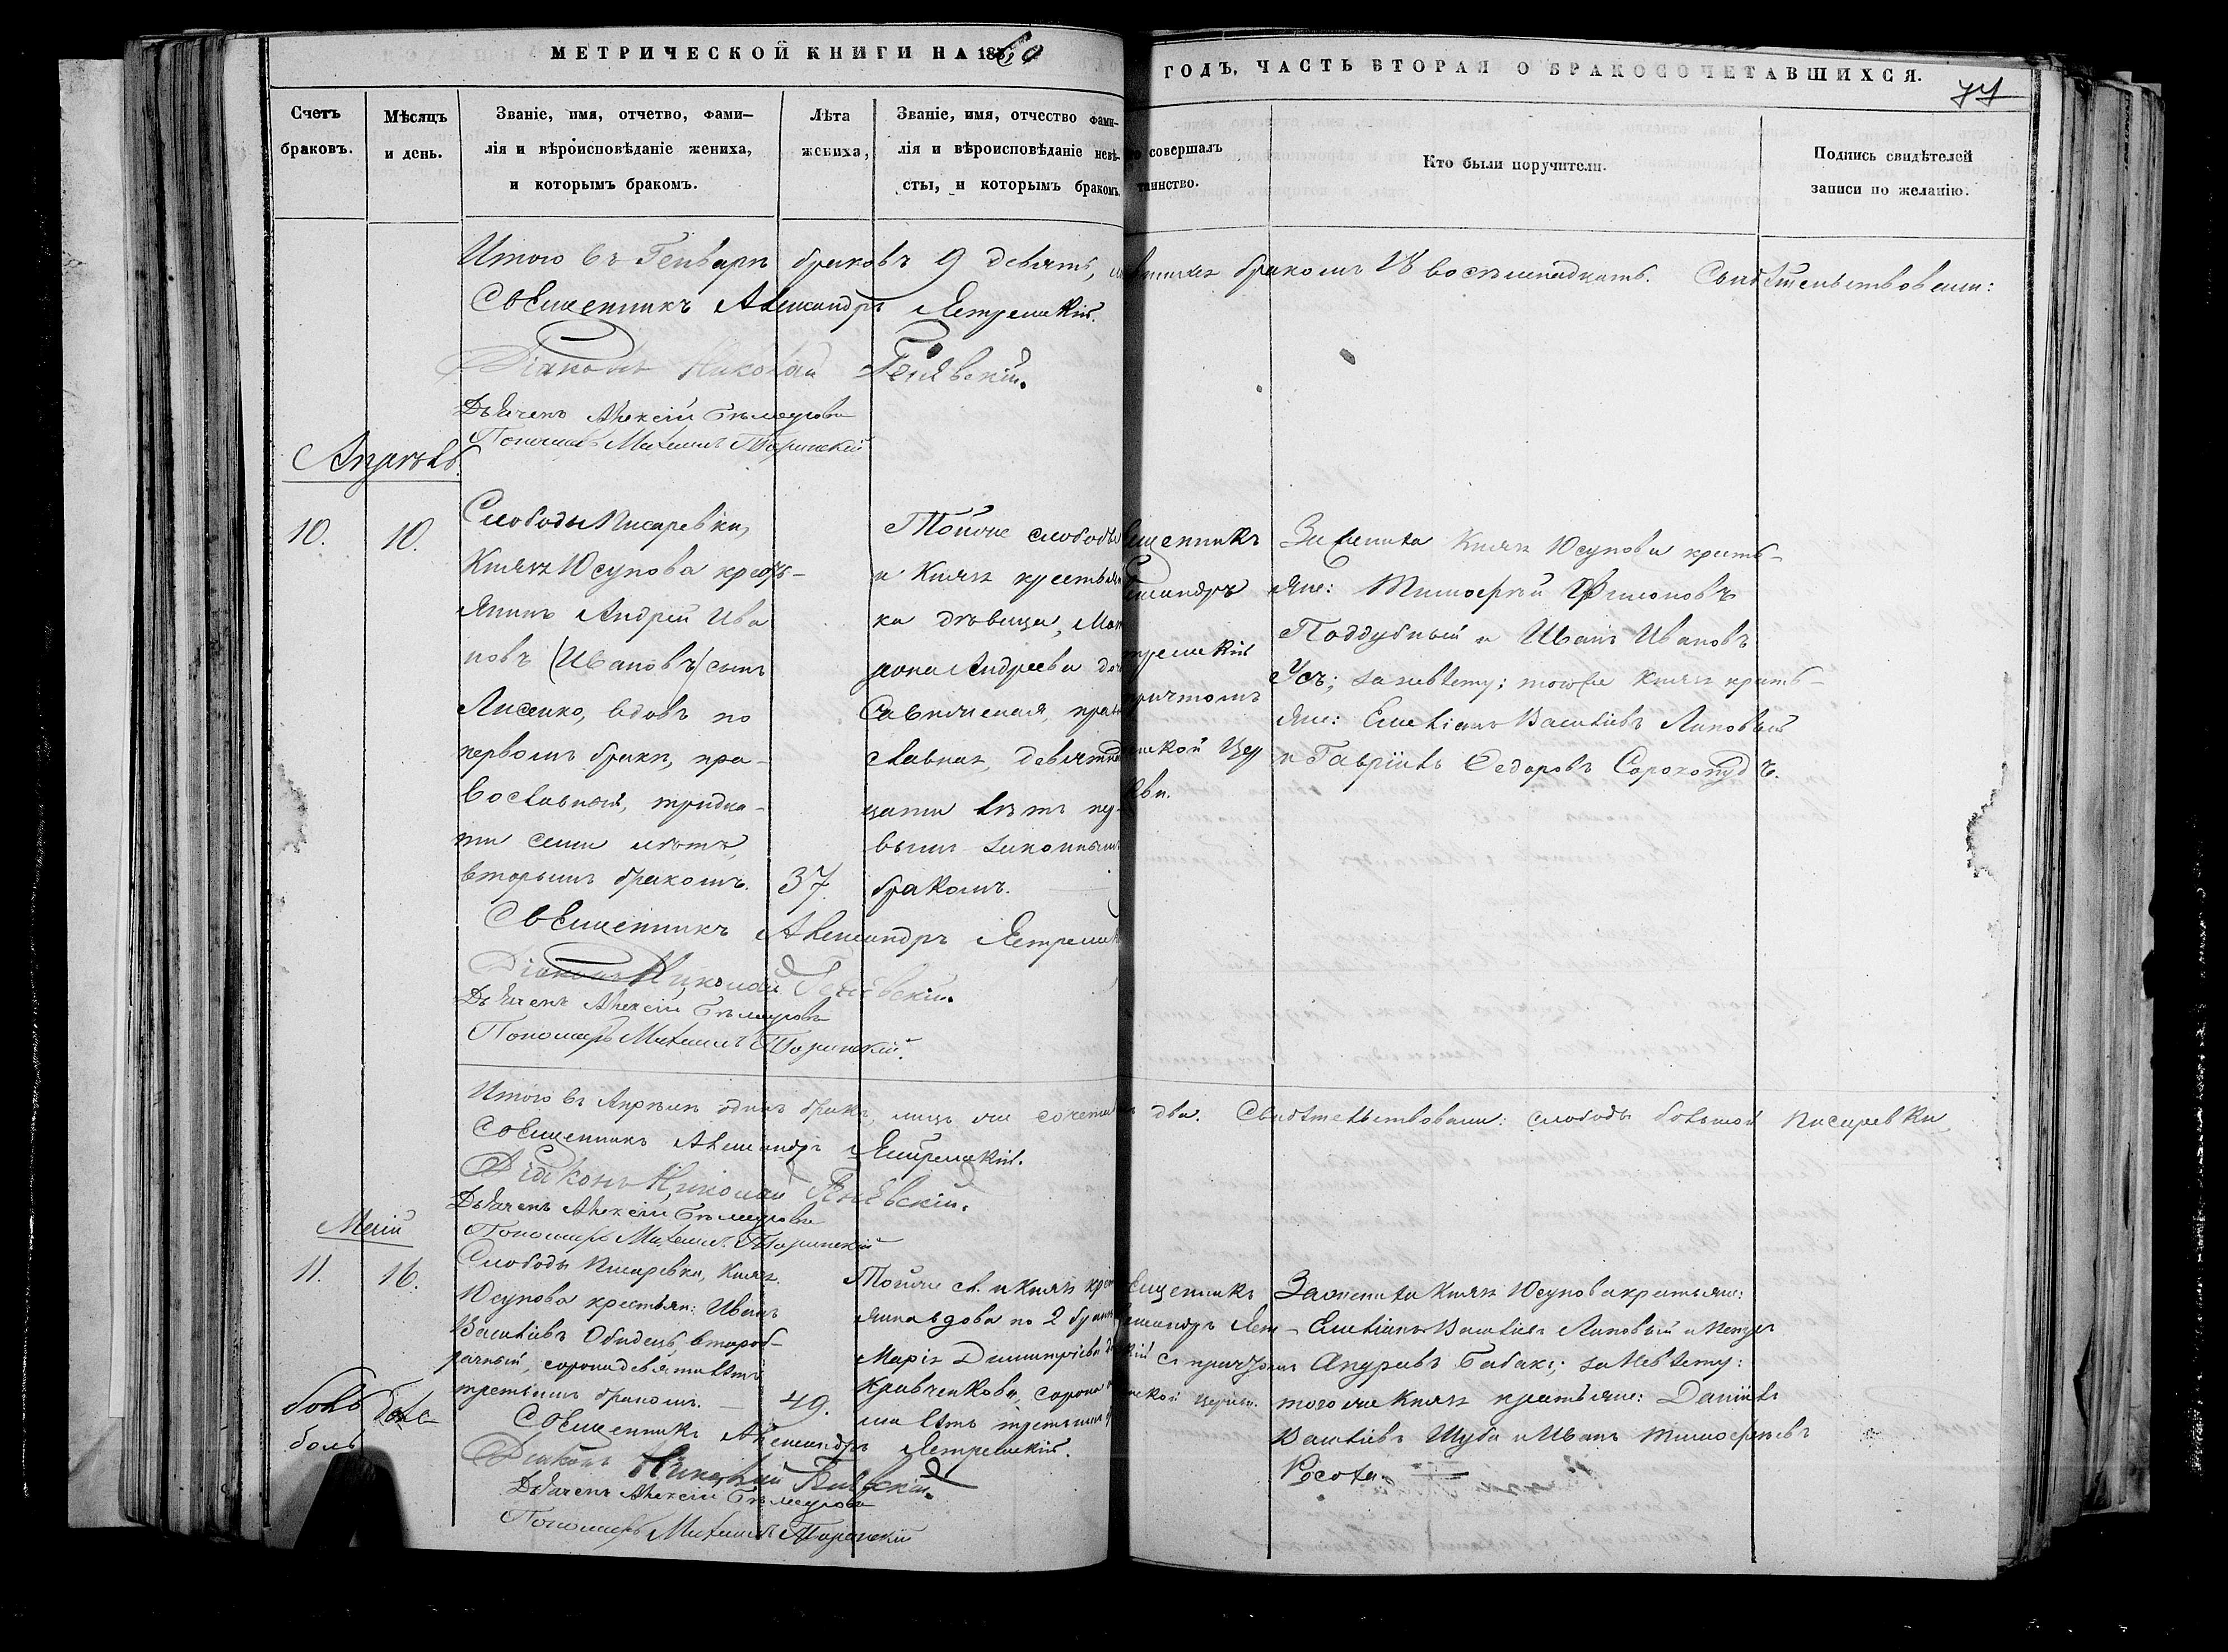 МЕТРИЧЕСКОЙ КНИГИ НА 1860
ГОДЪ, ЧАСТЬ ВТОРАЯ О БРАКОСОЧЕТАВШИХСЯ.
Счетъ
браковъ.
Мѣсяцъ
и день.
Званіе, имя, отчетво, фами-
лія и вѣроисповѣданіе жениха,
и которымъ бракомъ.
Лѣта
жениха,
Званіе, имя, отчество фами-
лія и вѣроисповѣданіе невѣ-
сты, и которымъ бракомъ
совершалъ
таинство.
Кто были поручители.
Подпись свидѣтелей
записи по желанію.
Итого въ Генварѣ браковъ 9 девять, бракомъ 18 восемнадцать. Свидѣтельствовали:
Священникъ Александръ Ястремскій.
Діаконъ Николай
Дьячекъ Алексій
Пономарь Михаилъ
Апрѣль
10.
10.
Слободы Писаревки,
Князя Юсупова кресть-
янинъ Андрей Ива
новъ (Ивановъ) сынъ
Лисенко, вдовъ по
первомъ бракѣ, пра-
вославный, тридца-
ти семи лѣтъ,
вторымъ бракомъ.
37.
Тойже слободы
и Князя крестьян
ка дѣвица, Мат
рона Андреева доч
православная, девятнад
цати лѣтъ пер-
вымъ законнымъ
бракомъ.
священникъ
ександръ
тремскій
причтомъ
ской Цер
кви.
За жениха Князя Юсупова кресть-
яне: Тимофей Филоновъ
Поддубный и Иванъ Ивановъ
Усъ; за невѣсту: тогоже Князя кресть-
яне: Емеліанъ Васильевъ Липовый
и Гавріилъ Федоровъ Сорокопудъ.
Священникъ Александръ Ястремскій
Діаконъ Николай
Дьячекъ Алексій
Пономарь Михаилъ
Итого въ Апрѣлѣ одинъ бракъ, лицъ два. Свидѣтельствовали: слободы большой Писаревки
Священникъ Александръ Ястремскій.
Діаконъ Николай
Дьячекъ Алексій
Пономарь Михаилъ
Маій
11.
16.
Слободы Писаревки, Князя
Юсупова крестьян: Иванъ
Васильевъ Обидецъ, второб-
рачный, сорока девяти лѣтъ
третьимъ бракомъ.
49.
Тойже сл. и Князя крест
янка вдова по 2 бракѣ
Марія Димитріева
Кравченкова, сорока
ми лѣтъ третьимъ
священникъ
ександръ Яст-
скій съ причтомъ
ской церкви.
За жениха Князя Юсупова крестьяне:
Емеліанъ Васильевъ Липовый и Петръ
Бабакъ; за невѣсту:
того же Князя крестьяне: Даніилъ
Васильевъ Шуба и Иванъ Тимофеевъ
Священникъ Александръ Ястремскій.
Діаконъ Николай
Дьячекъ Алексій
Пономарь Михаилъ